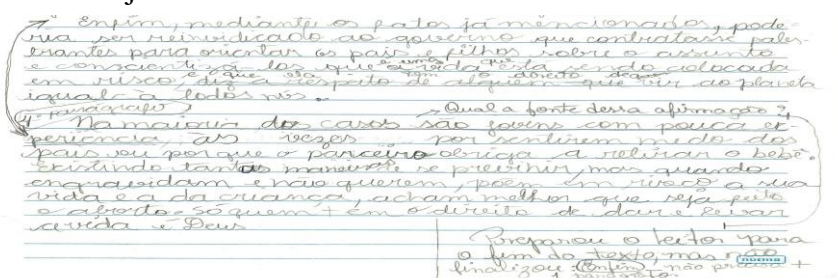 Enfim, mediante os fatos já mencionados, pode-
ria ser reinvidicado ao governo que contratasse pales-
trantes para orientar os pais e filhos sobre o assunto
e conscientizá-los que é uma vida que está sendo colocada
em risco, e que ela diz a respeito de alguem que tem o direito de vir ao planeta
igual à todos nós.
4º Parágrafo
Qual a fonte dessa afirmação?
Na maioria dos casos são jovens com pouca ex-
periência, às vezes por sentirem medo dos
pais ou porque o parceiro obriga a retirar o bebê.
Existindo tantas maneiras se prevenir, mas quando
engravidam e não querem, põem em risco a sua
vida e a da criança, acham melhor que seja feito
o aborto. Só quem tem o direito de dar e
a vida é Deus
Preparou o leitor para
o fim do texto, mas não
finalizou (enfim). não precisa +
1 parágrafo